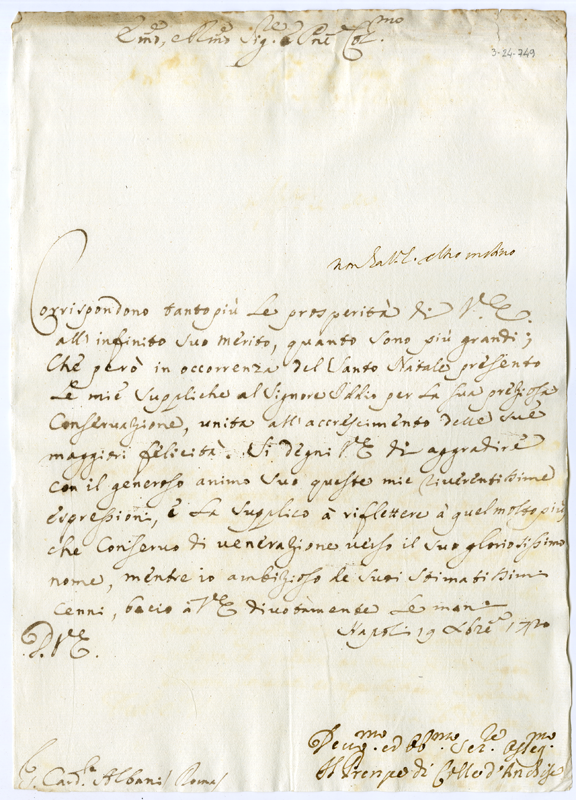 Em̃o, e Rm̃o Sig.re e Pne Col.mo
3-24-749
non ha altro motivo
Corrispondono tanto più le prosperità di V.E.
all'infinito suo merito, quanto sono più grandi;
che però in occorrenza del Santo Natale presento
le mie suppliche al Signore Iddio per la sua preziosa
conservazione, unita all'accrescimento delle sue
maggiori felicità. Si degni V.E. di aggradire
con il generoso animo suo queste mie riverentissime
espressioni, e la supplico à riflettere à quel molto più,
che conservo di venerazione verso il suo gloriosissimo
nome, mentre io ambizioso de suoi stimatissimi
cenni, bacio à V.E. divotamente le mani
Napoli 19 Xbre 17
D.V.E.
Devmo. ed Obmo. Ser.re Osseqmo
Il Prenpe di Colle d'Anchise
Card.le Albani / Roma /